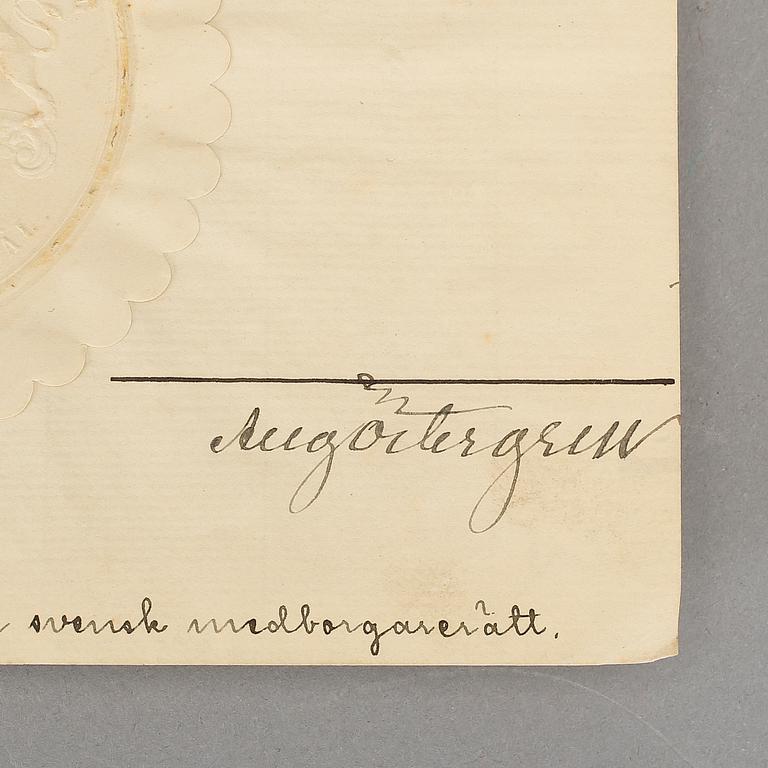 Aug Östergren
svensk medborgarerätt.